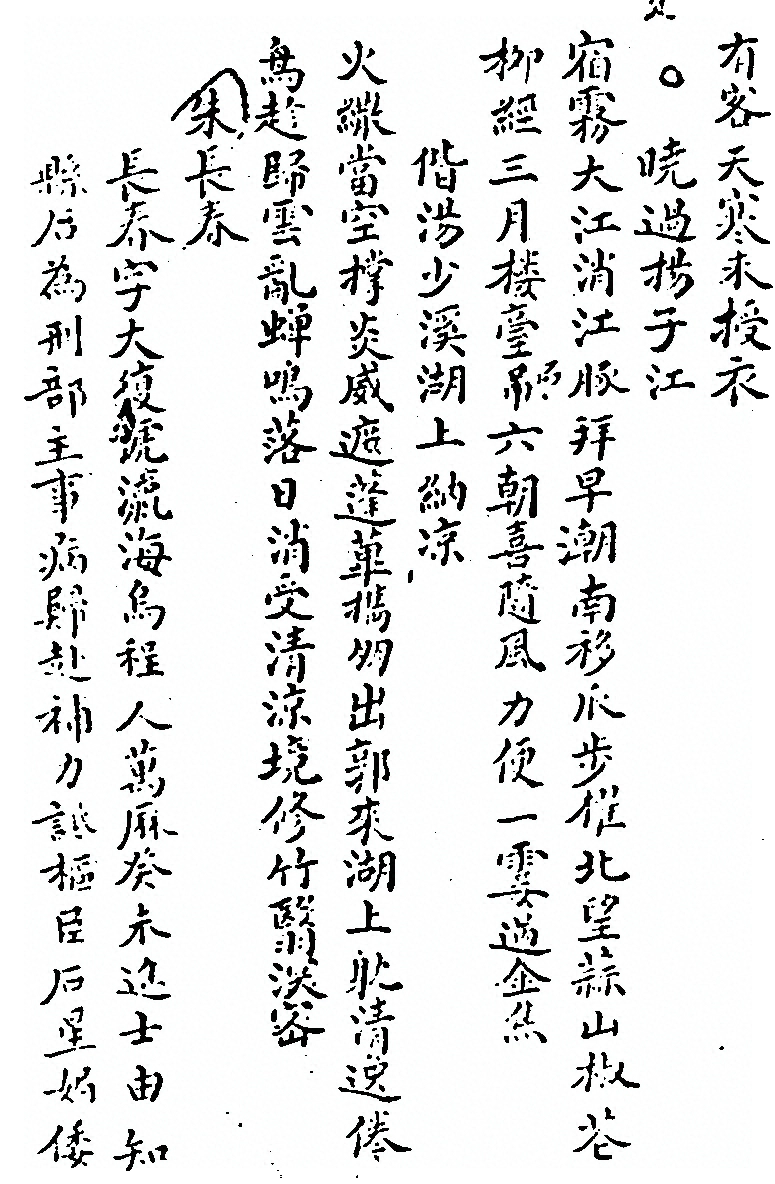 有客天寒未授衣
曉過揚子江
宿霧大江消江豚拜早潮南移瓜步樹北望蒜山椒花
柳經三月楼臺歷六朝喜隨風力便一霎過金焦
偕湯少溪湖上納凉
火繖當空撑炎威遮蓬蓽携朋出郭來湖上躭清逸倦
鳥趁歸雲亂蟬鳴落日消受清涼境修竹翳淡密
朱長春
長春字大復號瀛海烏程人萬厤癸未進士由知
縣后為刑部主事病歸赴補力詆樞臣石星媚倭